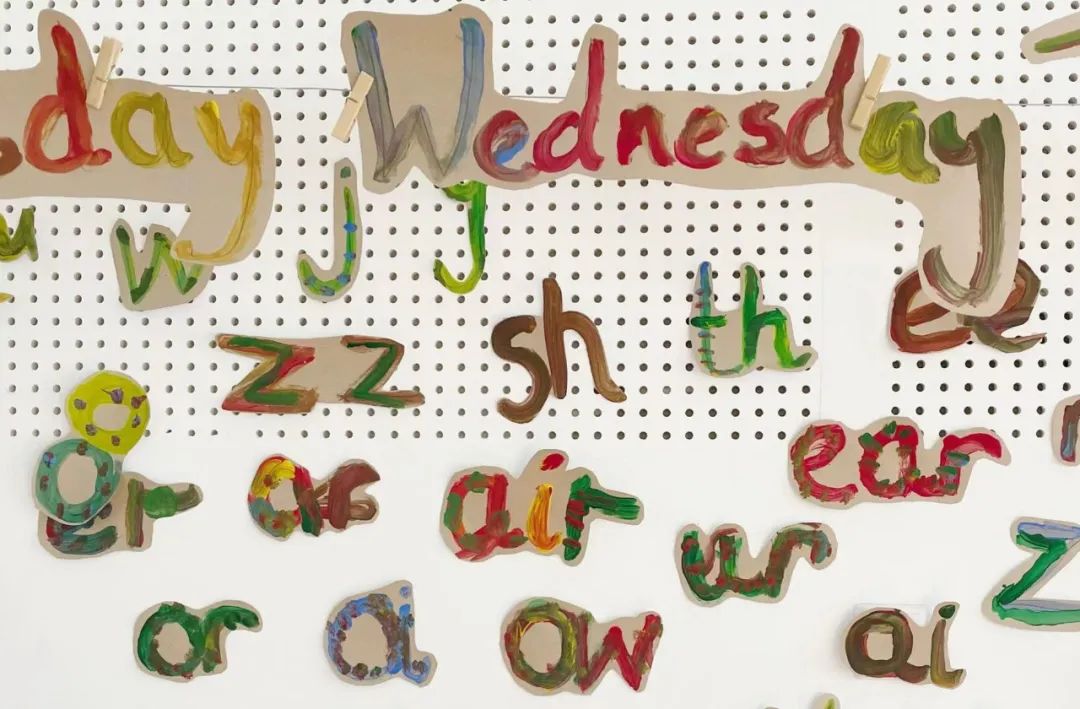 day Wednesday
w j y
zz sh th er
er ae air ear
ur z
or a ow ai